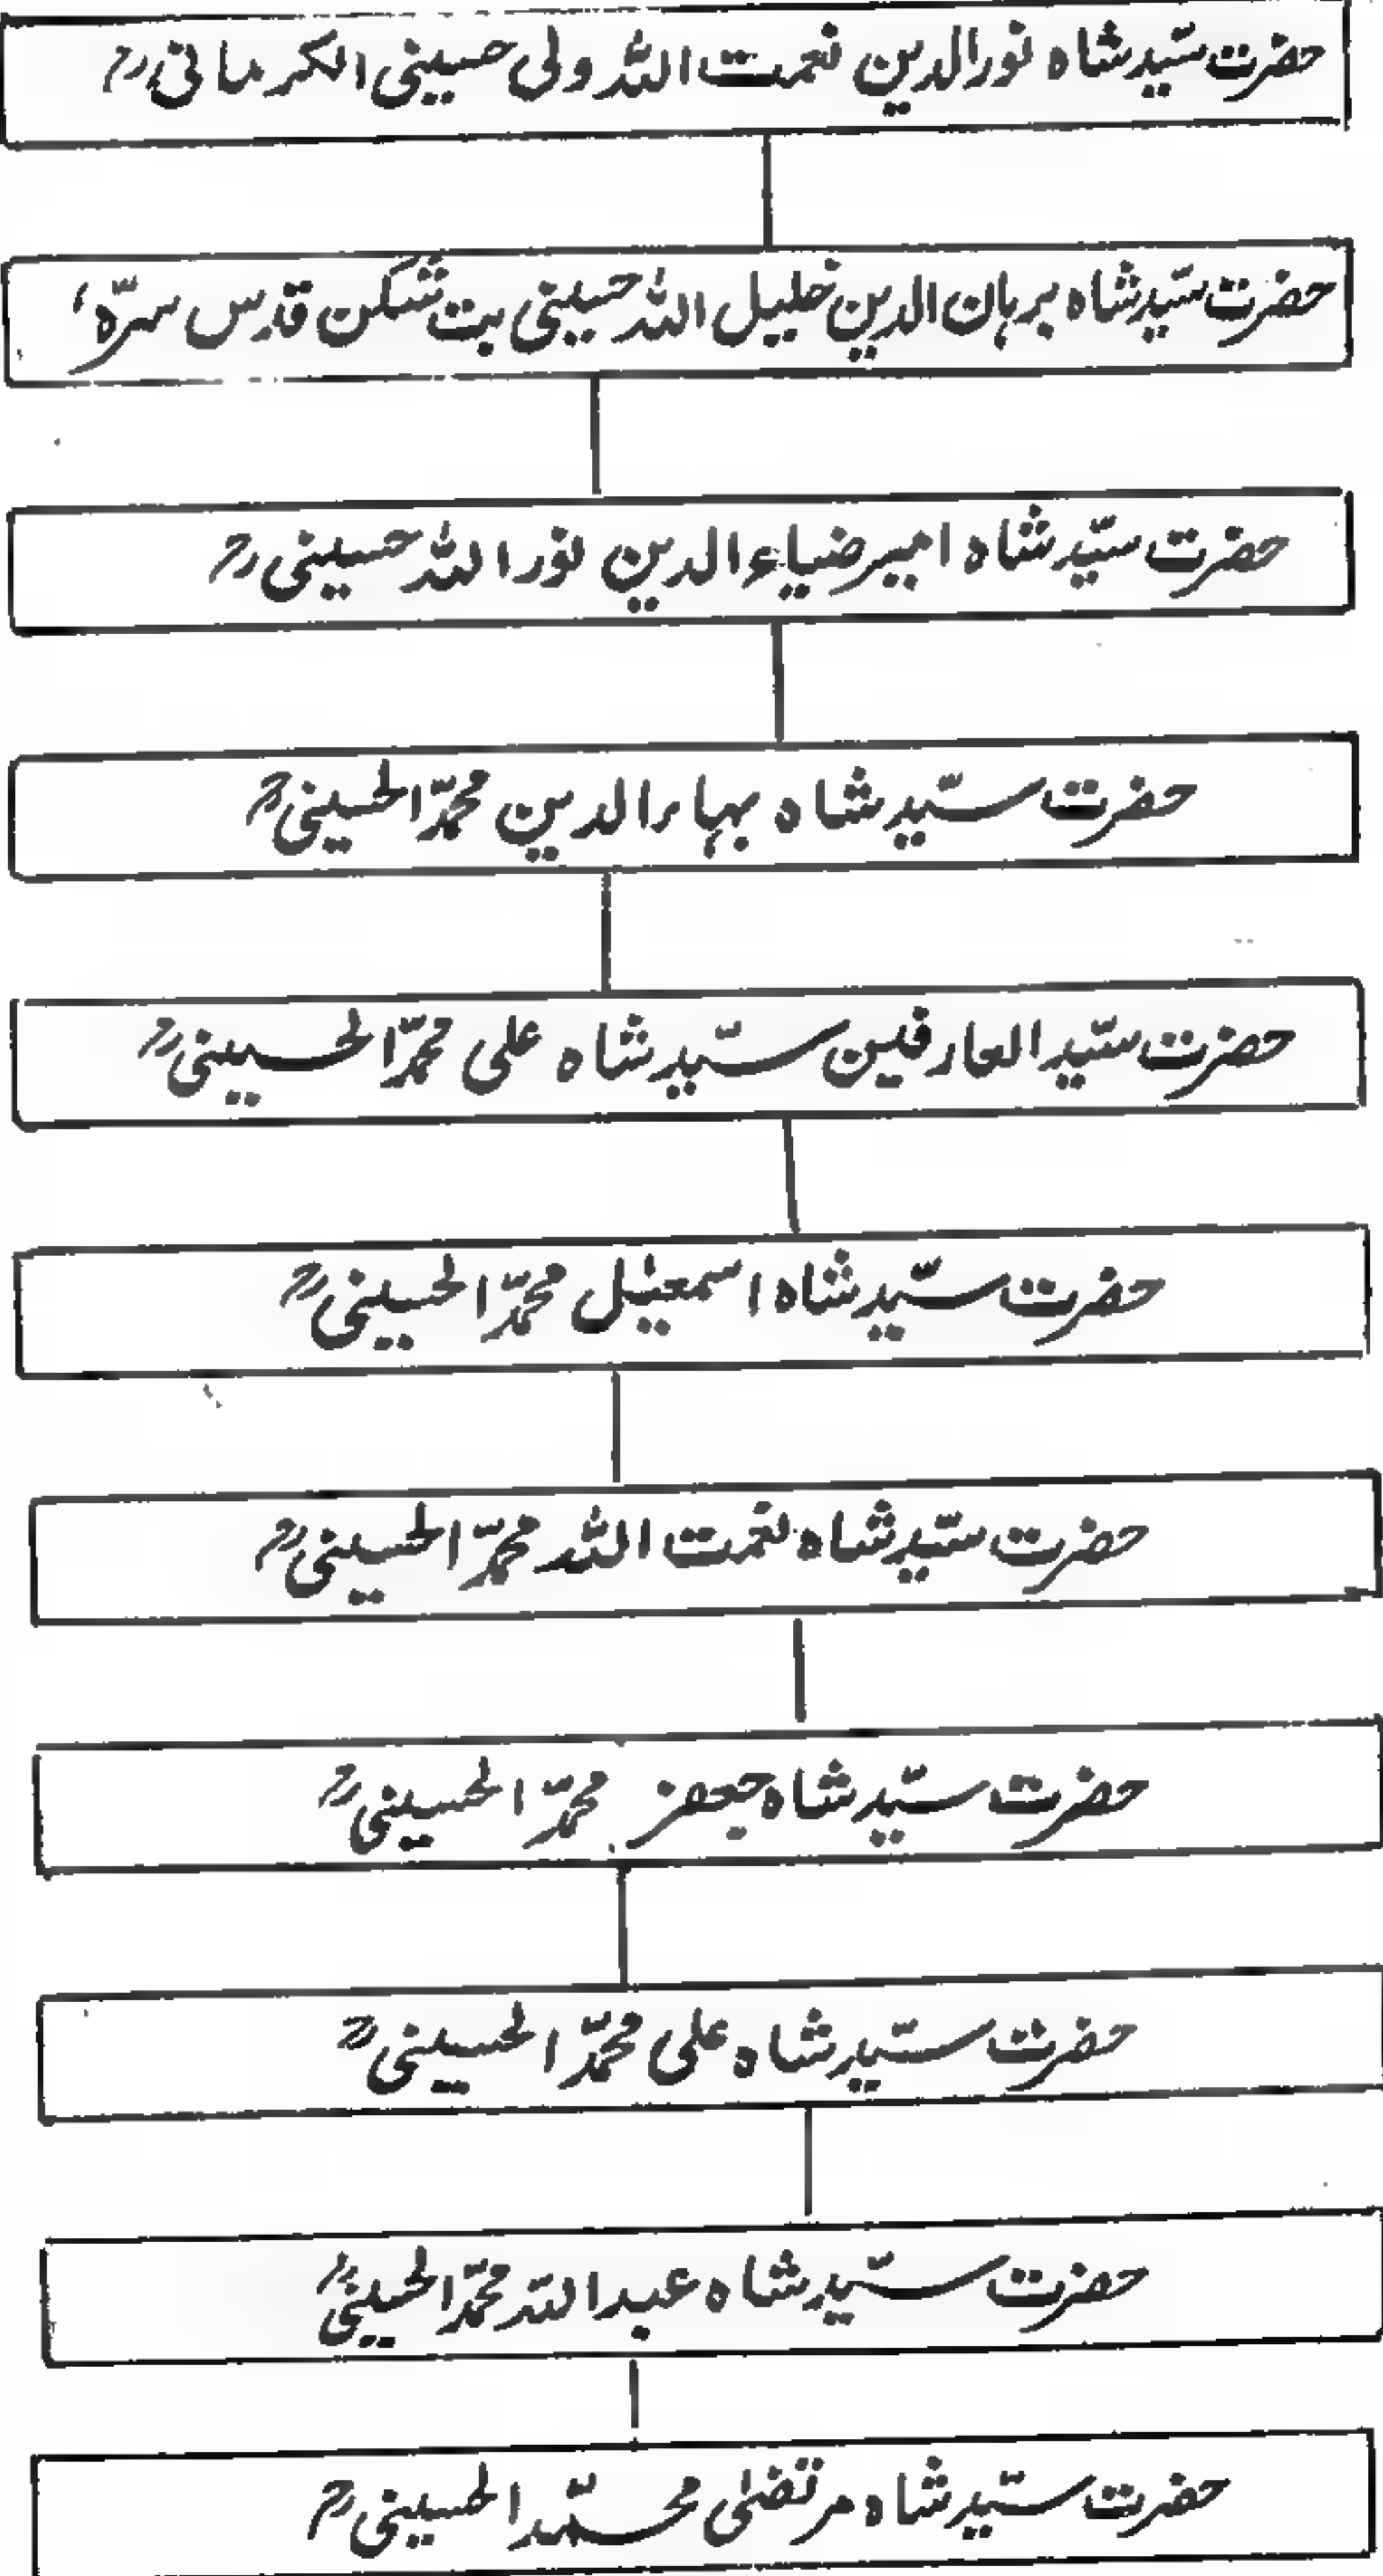 حضرت سیّد شاہ نورالدین نعمت اللہ ولی حسینی الکرمانی رح
حضرت سیّد شاہ برہان الدین خلیل اللہ حسینی بت شکن قدس سرّہٗ
حضرت سیّد شاہ امیر ضیاء الدین نور اللہ حسینی رح
حضرت سیّد شاہ بہاء الدین محمّد الحسینی رح
حضرت سیّد العارفین سیّد شاہ علی محمّد الحسینی رح
حضرت سیّد شاہ اسمعیٰل محمّد الحسینی رح
حضرت سیّد شاہ نعمت اللہ محمّد الحسینی رح
حضرت سیّد شاہ جعفر محمّد الحسینی رح
حضرت سیّد شاہ علی محمّد الحسینی رح
حضرت سیّد شاہ عبد اللہ محمّد الحسینی رح
حضرت سیّد شاہ مرتضیٰ محمّد الحسینی رح